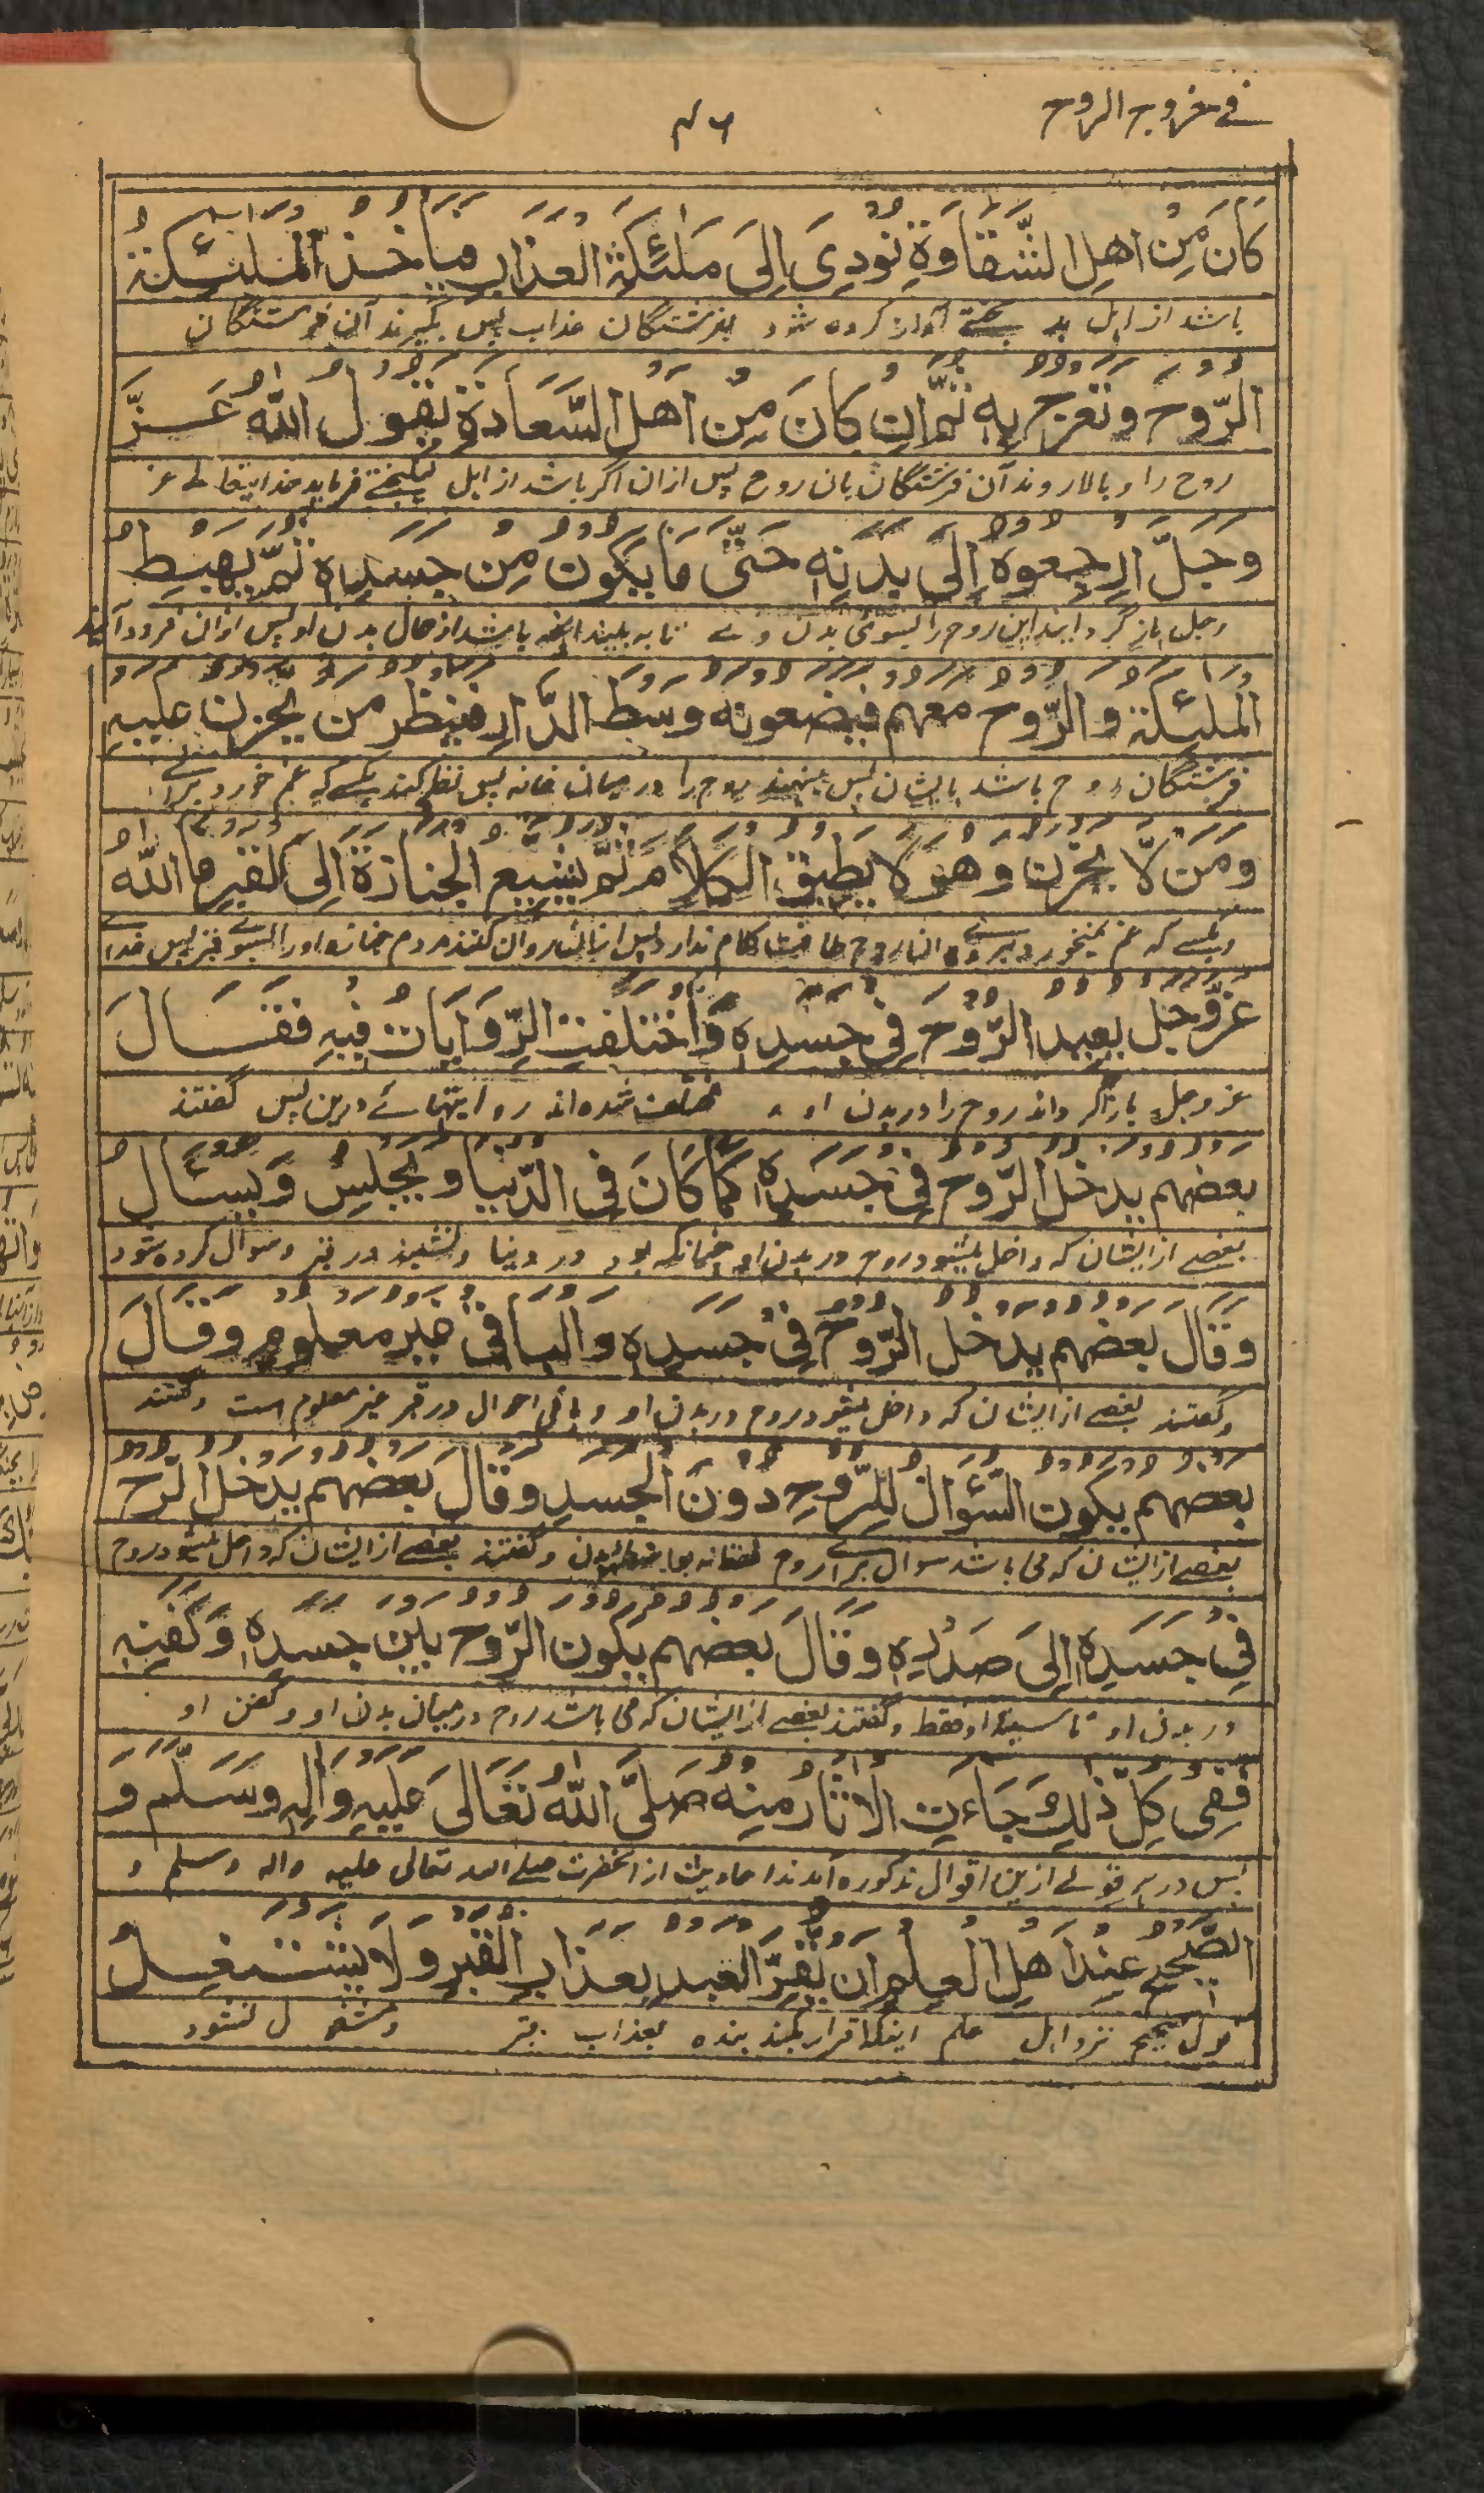 في خروج الروح
۴۶
كَانَ مِنْ اَهْلِ الشَّقَاوَةِ نُوْدِيَ اِلَى مَلٰئِكَةِ الْعَذَابِ فياخذ الملٰئكة
باشد از اہل بد بختے آواز کردہ شود بفرشتگان عذاب پس بگیرند آن فرشتگان
الرّوح وتعرج به ثم ان كَانَ مِنْ اَهْلِ السَّعَادَةِ يقول اللهُ عَزَّ
روح را و بالا روند آن فرشتگان بان روح پس ازان اگر باشد از اہل نیکبختے فرماید خدایتعالے عز
وَجَلَّ ارجعوه اِلَى بدنِه حَتّٰى مَا يكون مِنْ جَسَدِهٖ ثمّ يهبط
وجل باز گردانید این روح را بسوئ بدن وے تا بہ بیند انچہ باشد از حال بدن او پس ازان فرود آیند
الملٰئكة والرّوح معهم فيضعونه وسط الدّار فينظر من يحزن عليه
فرشتگان و روح باشد بایشان پس بنہند روح را در میان خانہ پس نظر کند بکسے کہ غم خورد برائے
وَمَنْ لَّا يحزن وَهُوَ لا يطيق الكلام ثمّ يشيّع الجنازة اِلَى القبر فاللهُ
وبکسے کہ غم نمیخورد بر وے طاقت کلام ندارد پس کنند مردم جنازہ او را بسوئے قبر پس خدا
عزّوجل يعيد الرّوح فِيْ جَسَدِهٖ وَاخْتلفت الرِّوَايَات فيه فقَالَ
عز وجل باز گرداند روح را در بدن او و مختلف شدہ اند روایتہائے درین پس گفتند
بعضهم يدخل الرّوح فِيْ جَسَدِهٖ كَمَا كَانَ فِي الدُّنْيَا ويجلِسُ وَيسئال
بعضے از ایشان کہ داخل میشود روح در بدن او چنانکہ بود در دنیا و نشیند در قبر و سوال کردہ شود
وَقَالَ بعضهم يدخل الرّوح فِيْ جسده والباقي خبر معلوم وقَالَ
وگفتند بعضے از ایشان کہ داخل میشود روح در بدن او و باقی احوال در قبر معلوم است وگفتند
بعضهم يكون السُّوَال للرّوح دُوْنَ الجسد وقَالَ بعضهم يدخل الرّوح
بعضے از ایشان کہ می باشد سوال برائے روح بدن وگفتند بعضے از ایشان کہ داخل میشود روح
فِيْ جَسَدِهٖ اِلَى صَدْرِهٖ وقَالَ بعضهم يكون الرّوح بَيْنَ جسده وَكَفَنِهٖ
در بدن او تا سینہ او فقط وگفتند بعضے از ایشان کہ می باشد روح درمیان بدن او و کفن او
ففي كلّ ذلك جَاءَتِ الاثار منه صَلَّى اللهُ تَعَالَى عَلَيْهِ وَاٰلِهٖ وَسَلَّمَ وَ
پس در ہر قولے ازین اقوال مذکورہ آمدند احادیث از آنحضرت صلے اللہ تعالی علیہ والہ وسلم و
الصّحيح عِنْدَ اَهْلِ العِلْمِ ان يُقِرّ العبد بعذابِ القَبْرِ ولا يشتغل
قول صحیح نزد اہل علم اینکہ اقرار بکند بندہ بعذاب قبر و مشغول نشود